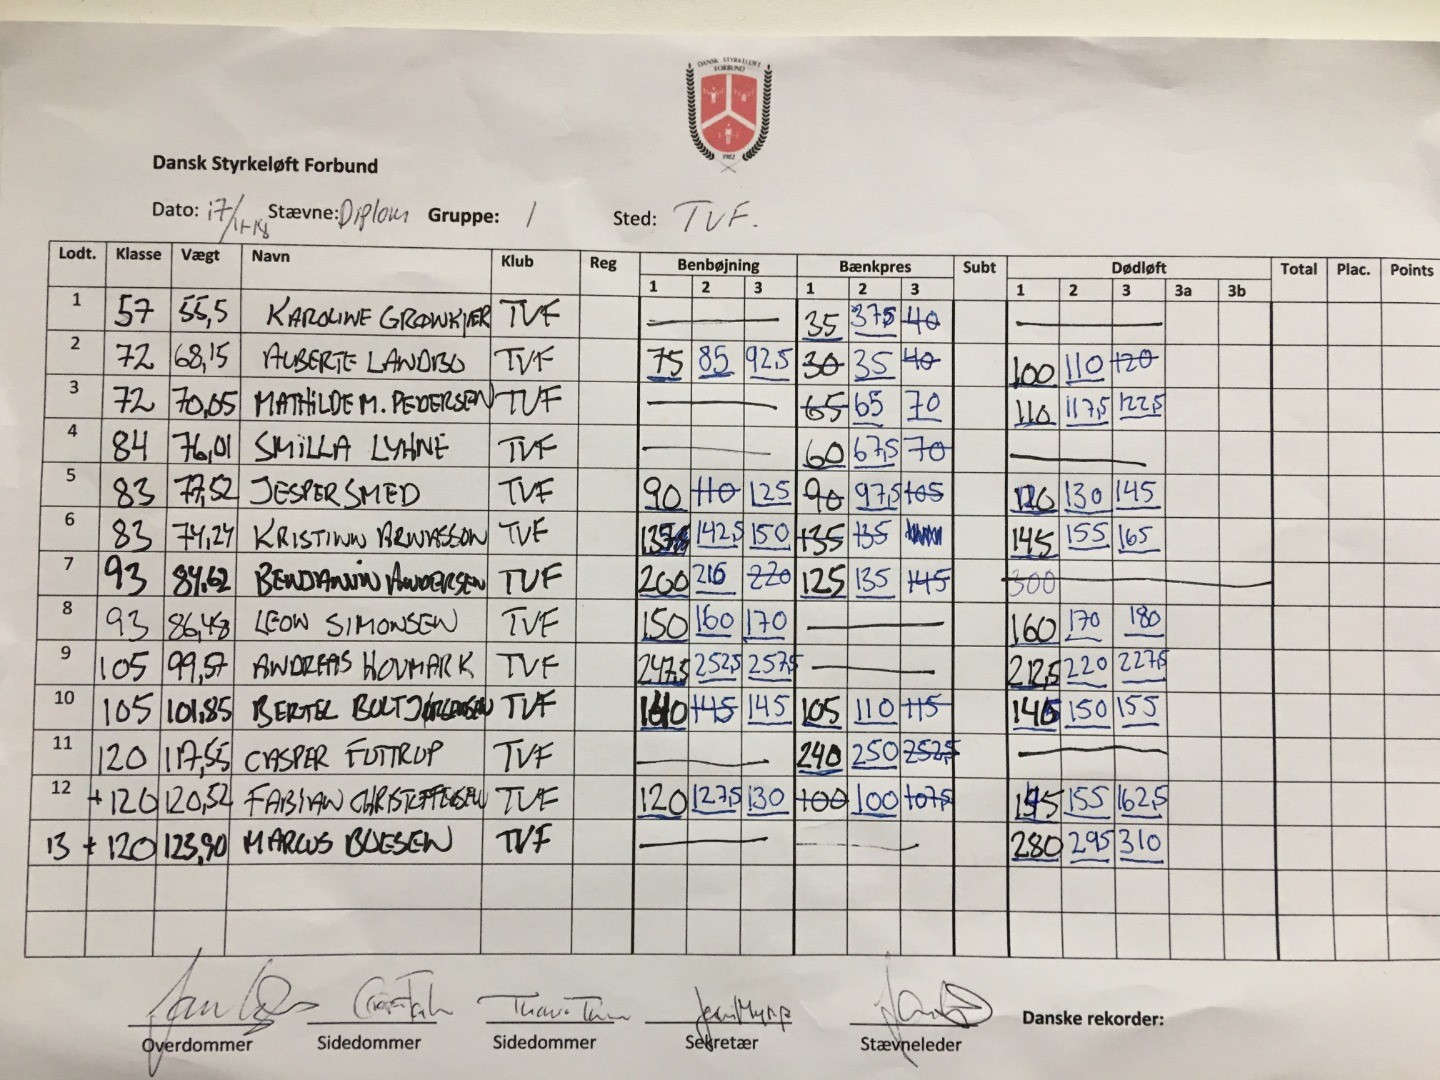 DANSK STYRKELØFT
FORBUND
1982
Dansk Styrkeløft Forbund
Dato: 17/11-18 Stævne: Diplom Gruppe: 1 Sted: TVF.
Lodt. Klasse Vægt Navn Klub Reg Benbøjning Bænkpres Subt Dødløft Total Plac. Points
1 2 3 1 2 3 1 2 3 3a 3b
1 57 55,5 KAROLINE GROONKJER TVF — 35 37,5 40 —
2 72 68,15 ALBERTE LANDBO TVF 75 85 92,5 30 35 40 100 110 120
3 72 70,05 MATHILDE M. PEDERSEN TVF — 65 65 70 110 117,5 122,5
4 84 76,01 SMILLA LYHNE TVF — 60 67,5 70 —
5 83 77,52 JESPER SMED TVF 90 110 125 90 97,5 105 120 130 145
6 83 74,24 KRISTINN ARNASSON TVF 137,5 142,5 150 135 135 145 155 165
7 93 84,62 BENDJAMIN ANDERSEN TVF 200 216 220 125 135 145 300 —
8 93 86,48 LEON SIMONSEN TVF 150 160 170 — 160 170 180
9 105 99,57 ANDREAS HOVMARK TVF 247,5 252,5 257,5 — 212,5 220 227,5
10 105 101,85 BERTEL BULT JØRGENSEN TVF 140 145 145 105 110 115 145 150 155
11 120 117,55 CASPER FUTTRUP TVF — 240 250 252,5 —
12 +120 120,52 FABIAN CHRISTEFFERSEN TVF 120 127,5 130 100 100 107,5 145 155 162,5
13 +120 123,90 MARCUS BOESEN TVF — — 280 295 310
Overdommer Sidedommer Sidedommer Sekretær Stævneleder Danske rekorder: